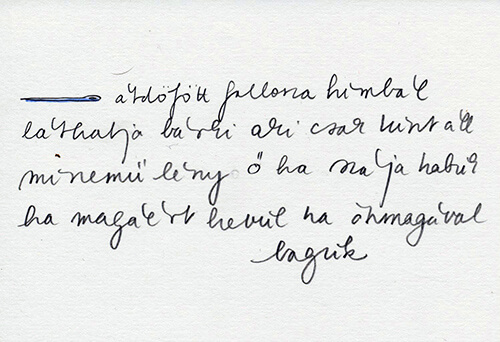 átdöfött gallona himbál
láthatja bárki aki csak kint áll
minemű lény ő ha szája habúl
ha magáért hevül ha önmagával
bagzik